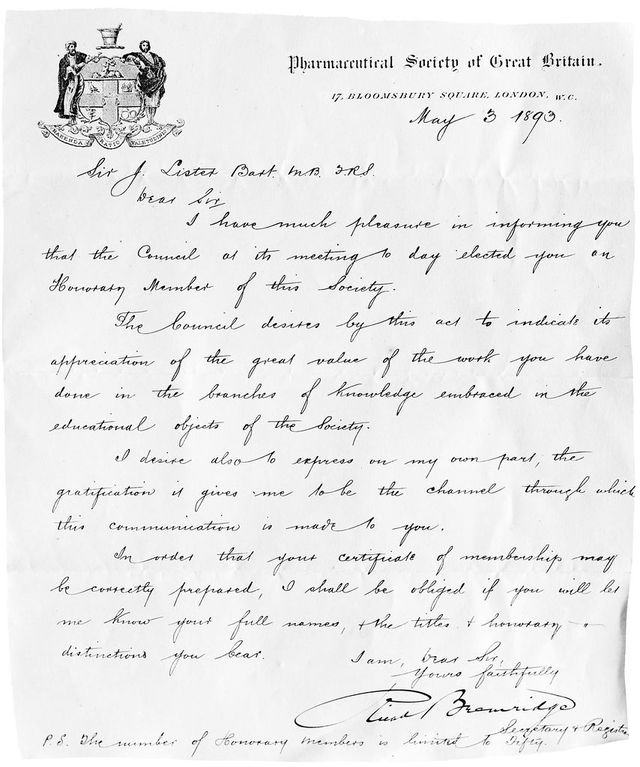 Pharmaceutical Society of Great Britain.
17, BLOOMSBURY SQUARE, LONDON, W.C.
May 3 1893.
HABENDA RATIO VALETUDINIS
Sir J. Lister Bart. M.B. F.R.S.
Dear Sir
I have much pleasure in informing you
that the Council at its meeting to day elected you an
Honorary Member of this Society.
The Council desires by this act to indicate its
appreciation of the great value of the work you have
done in the branches of Knowledge embraced in the
educational objects of the Society.
I desire also to express on my own part, the
gratification it gives me to be the channel through which
this communication is made to you.
In order that your certificate of membership may
be correctly prepared, I shall be obliged if you will let
me know your full names, & the titles & honorary
distinctions you bear.
I am, Dear Sir,
Yours faithfully
Richd Bremridge
Secretary & Registrar
P.S. The number of Honorary Members is limited to Fifty.